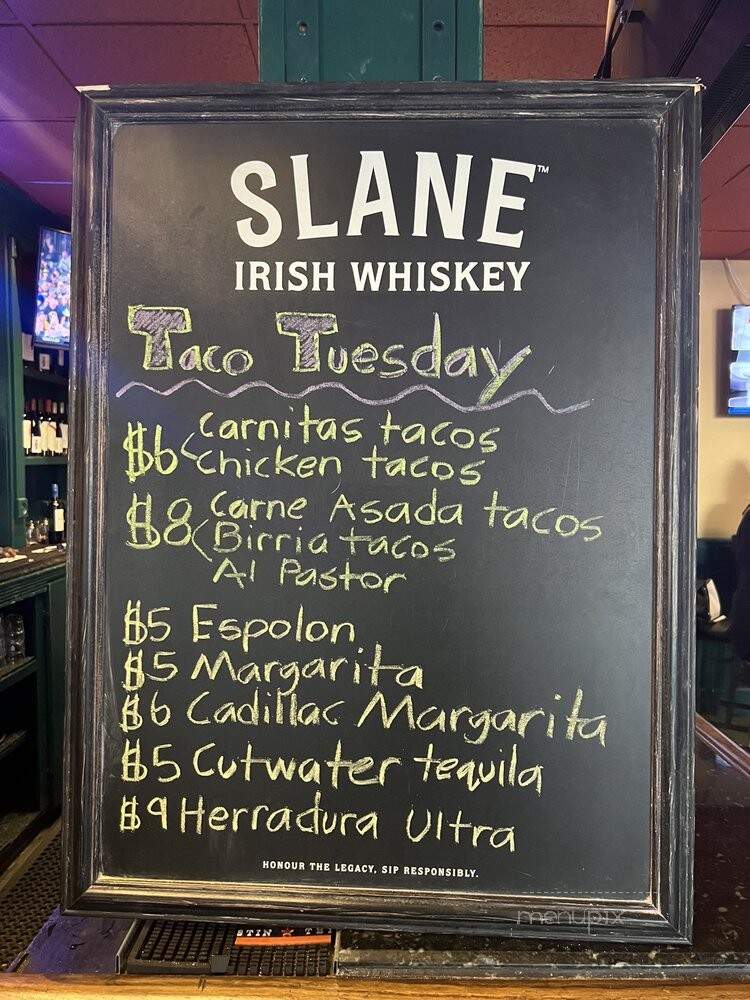 SLANE™
IRISH WHISKEY
Taco Tuesday
$6 Carnitas tacos
Chicken tacos
$8 Carne Asada tacos
Birria tacos
Al Pastor
$5 Espolon
$5 Margarita
$6 Cadillac Margarita
$5 Cutwater tequila
$9 Herradura Ultra
HONOUR THE LEGACY, SIP RESPONSIBLY.
menupix
STIN ★ TE